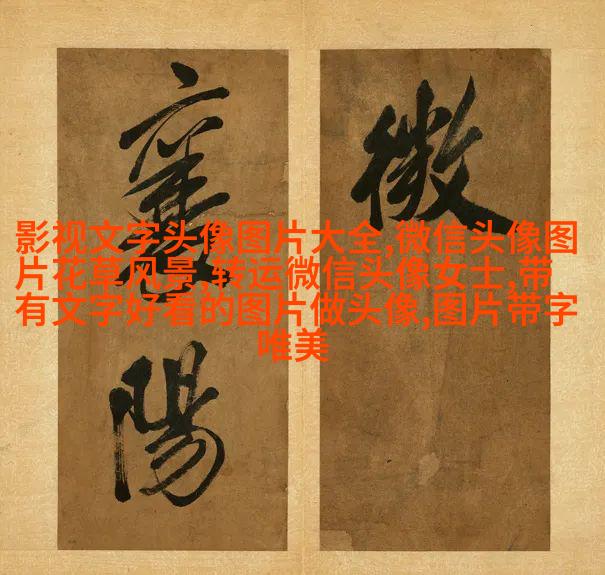 影视文字头像图片大全,微信头像图
片花草风景,转运微信头像女士,带
有文字好看的图片做头像,图片带字
唯美
微
襄陽